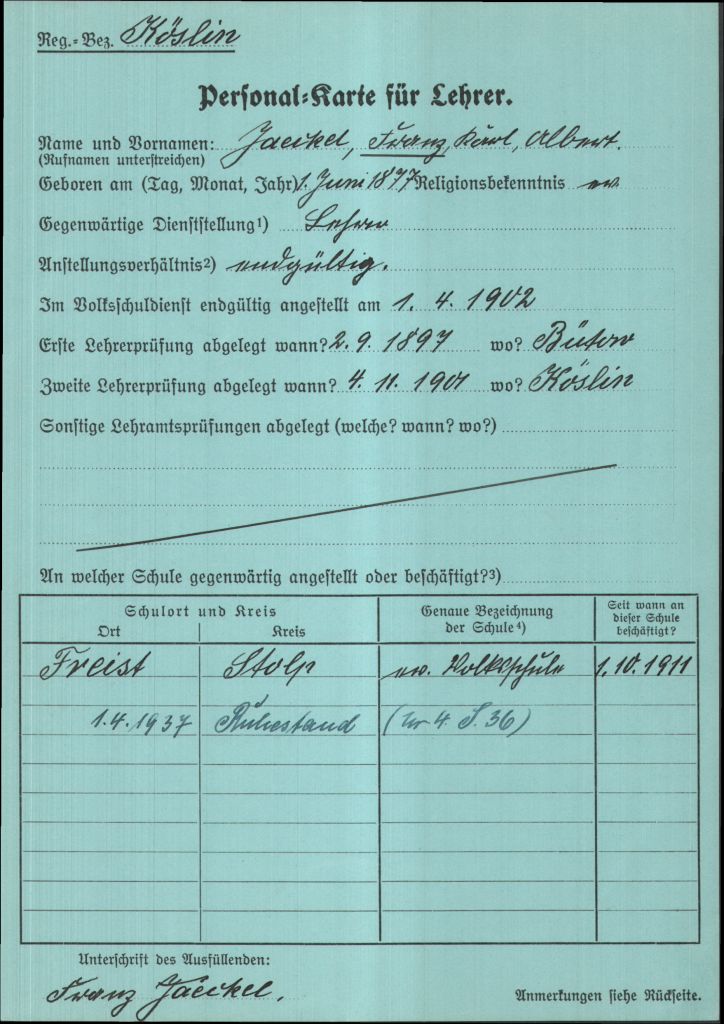 Reg.-Bez. Köslin
Personal-Karte für Lehrer.
Name und Vornamen: Jaeckel, Franz, Karl, Albert.
(Rufnamen unterstreichen)
Geboren am (Tag, Monat, Jahr) 1. Juni 1877 Religionsbekenntnis ev.
Gegenwärtige Dienststellung1) Lehrer
Anstellungsverhältnis2) endgültig.
Im Volksschuldienst endgültig angestellt am 1. 4. 1902
Erste Lehrerprüfung abgelegt wann? 2. 9. 1897 wo? Bütow
Zweite Lehrerprüfung abgelegt wann? 4. 11. 1901 wo? Köslin
Sonstige Lehramtsprüfungen abgelegt (welche? wann? wo?)
An welcher Schule gegenwärtig angestellt oder beschäftigt?3)
Schulort und Kreis
Ort Kreis
Genaue Bezeichnung
der Schule4)
Seit wann an
dieser Schule
beschäftigt?
Freist Stolp ev. Volksschule 1.10.1911
1.4.1937 Ruhestand 4. S. 36)
Unterschrift des Ausfüllenden:
Franz Jaeckel.
Anmerkungen siehe Rückseite.